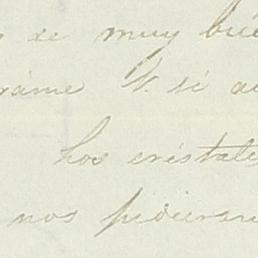 se muy bié
rame V. si a
los cristale
nos pidieran